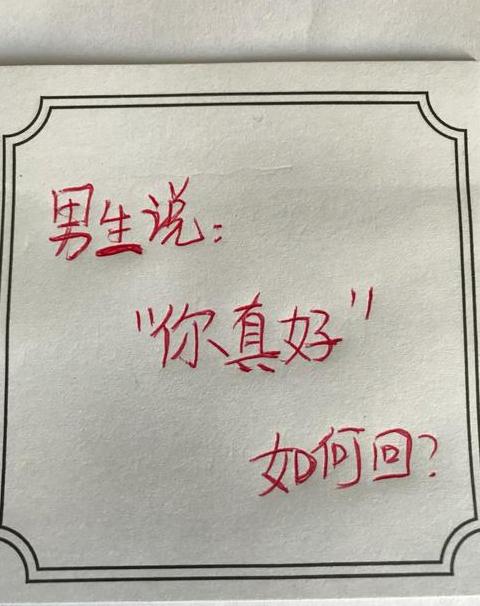 男生说:
"你真好"
如何回?